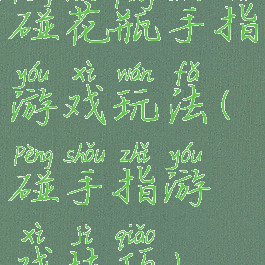 pèng huā píng shǒu zhǐ
碰花瓶手指
yóu xì wán fǎ
游戏玩法(
Pèng shǒu zhǐ yóu
碰手指游
xì jì qiǎo
戏技巧)